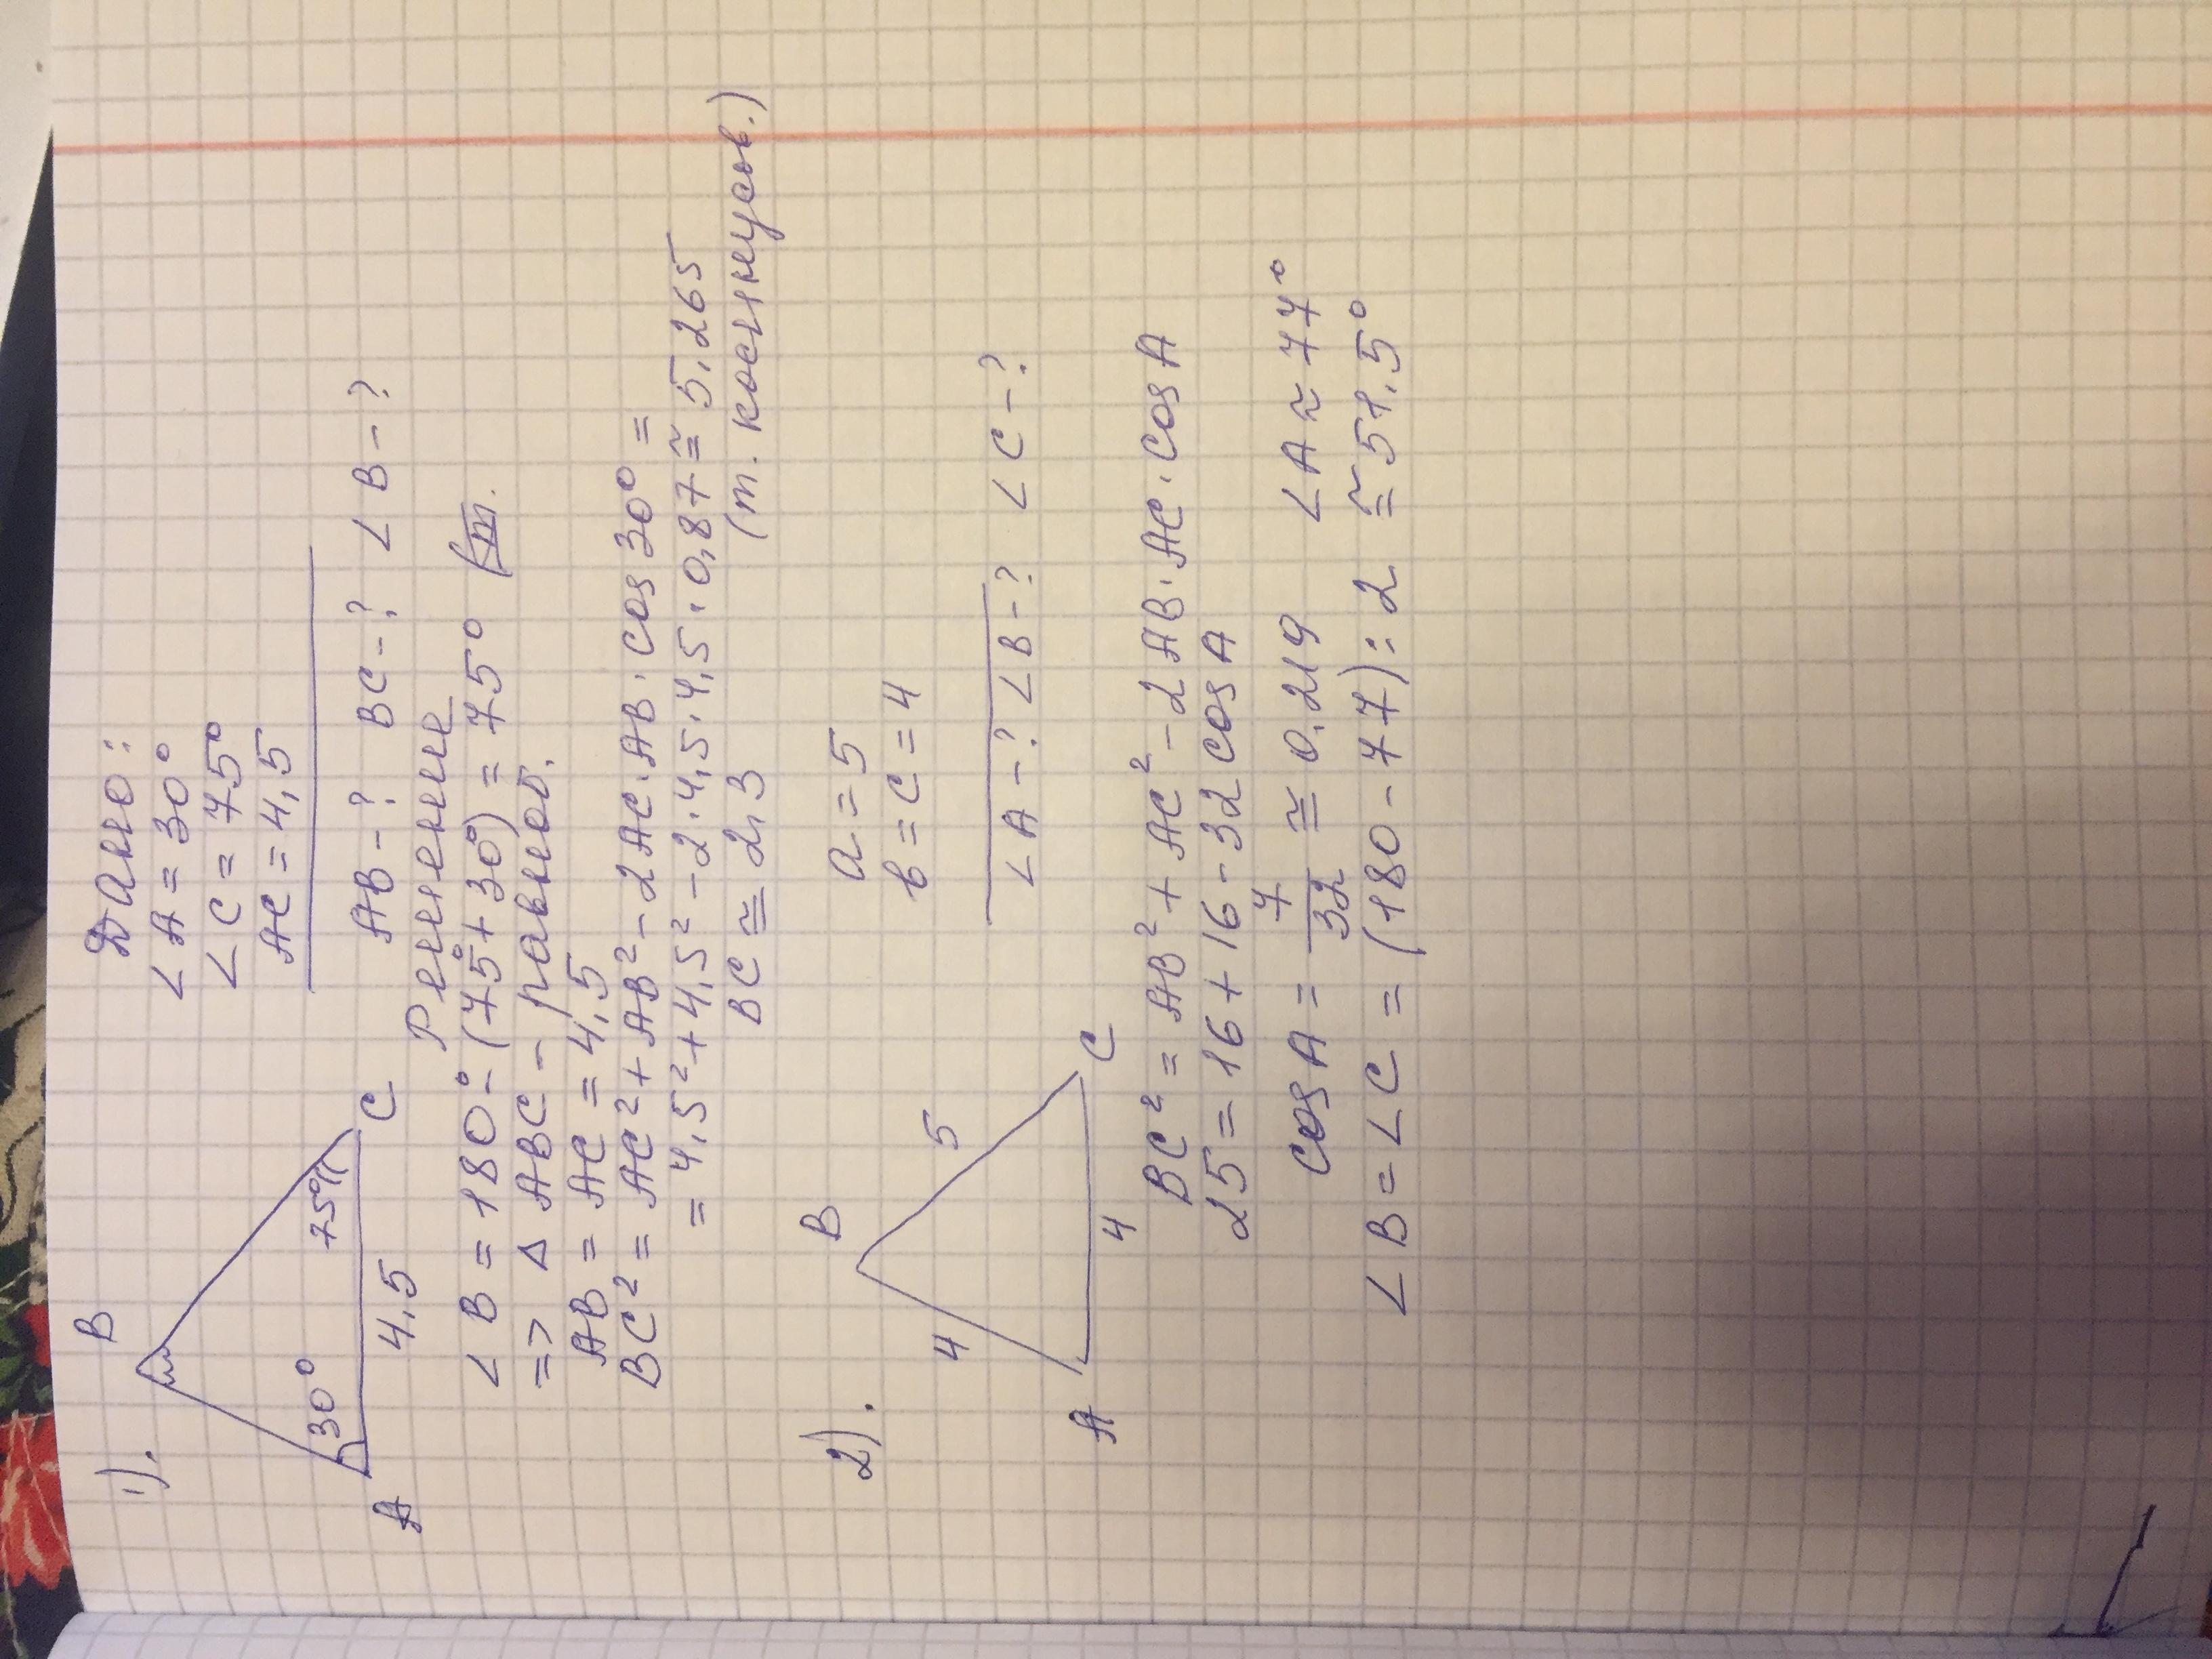 1). B
Дано:
∠A = 30°
∠C = 75°
AC = 4,5
30°
75°
A
4,5
C
AB - ? BC - ? ∠B - ?
Решение
∠B = 180° - (75° + 30°) = 75° (т.
=> Δ ABC - равноб.
AB = AC = 4,5
BC² = AC² + AB² - 2AC · AB · cos 30° =
= 4,5² + 4,5² - 2 · 4,5 · 4,5 · 0,87 ≅ 5,265
BC ≅ 2,3 (т. косинусов.)
2).
B
a = 5
b = c = 4
4
5
A
4
C
∠A - ? ∠B - ? ∠C - ?
BC² = AB² + AC² - 2AB · AC · cos A
25 = 16 + 16 - 32 cos A
cos A = 7/32 ≅ 0,219 ∠A ≈ 77°
∠B = ∠C = (180 - 77) : 2 ≅ 51,5°